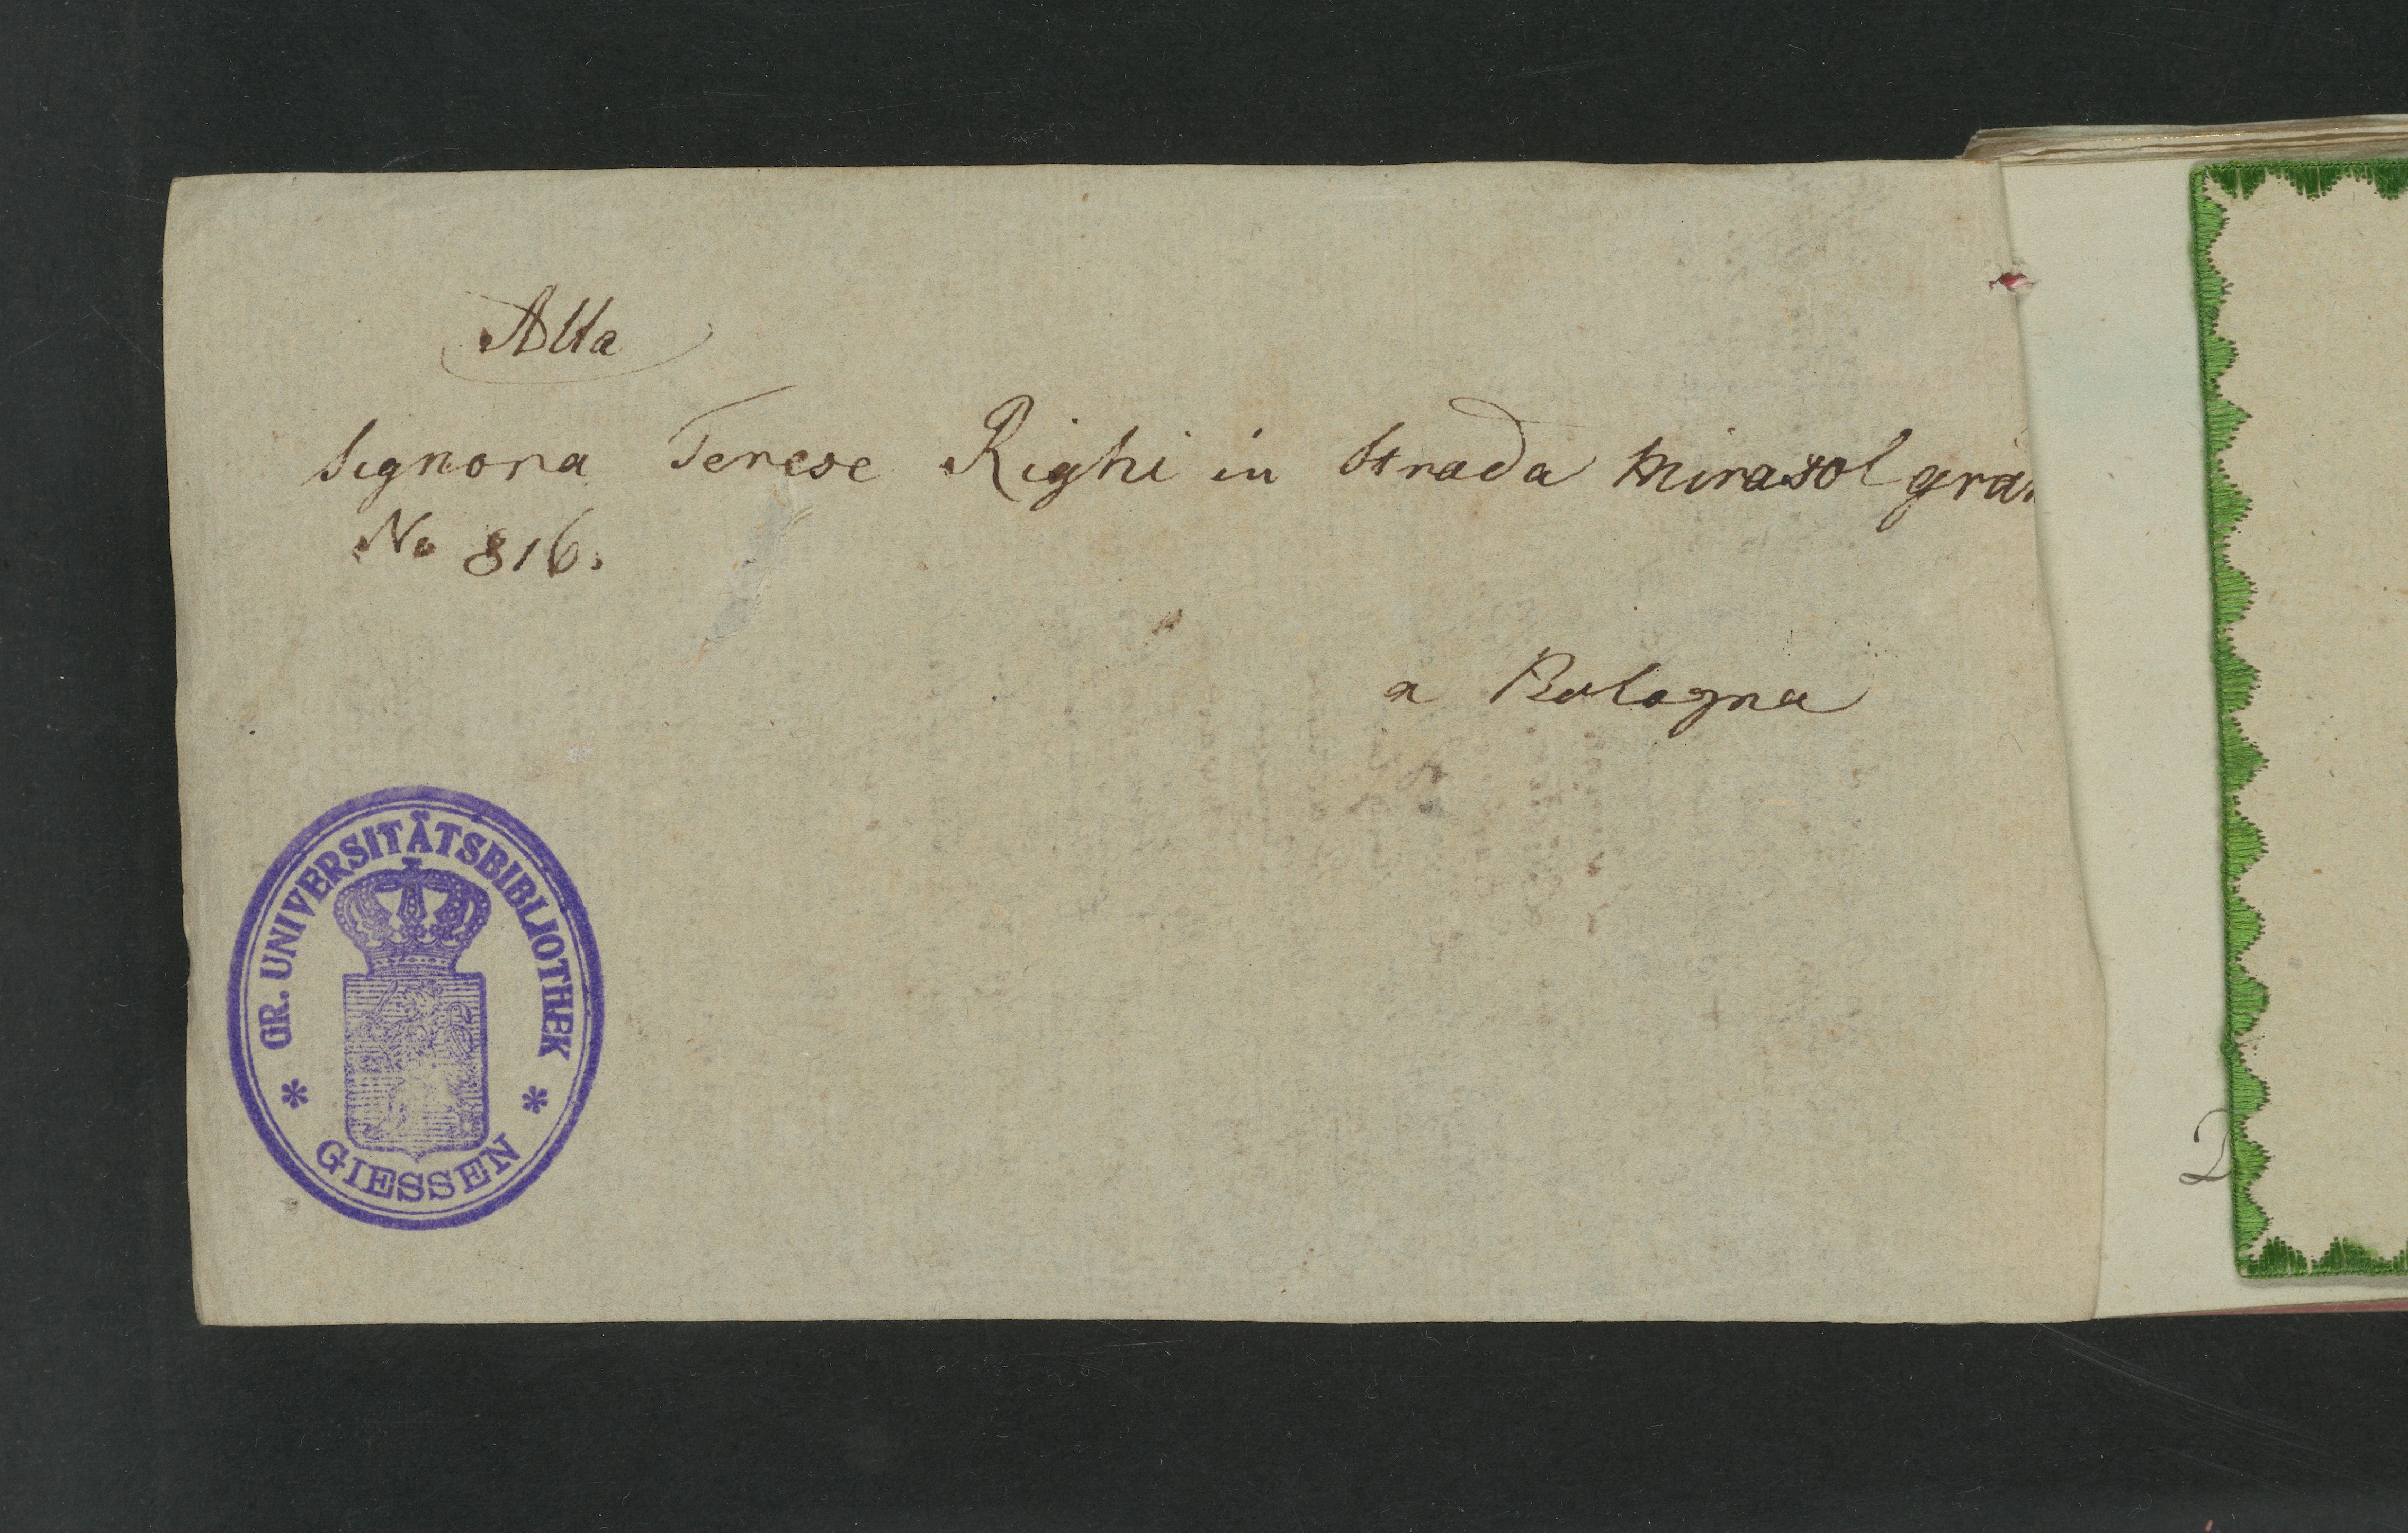 Alla
Signora Terese Righi in Strada Mirasol gran
No 816.
a Bologna
GR. UNIVERSITÄTSBIBLIOTHEK
* *
GIESSEN